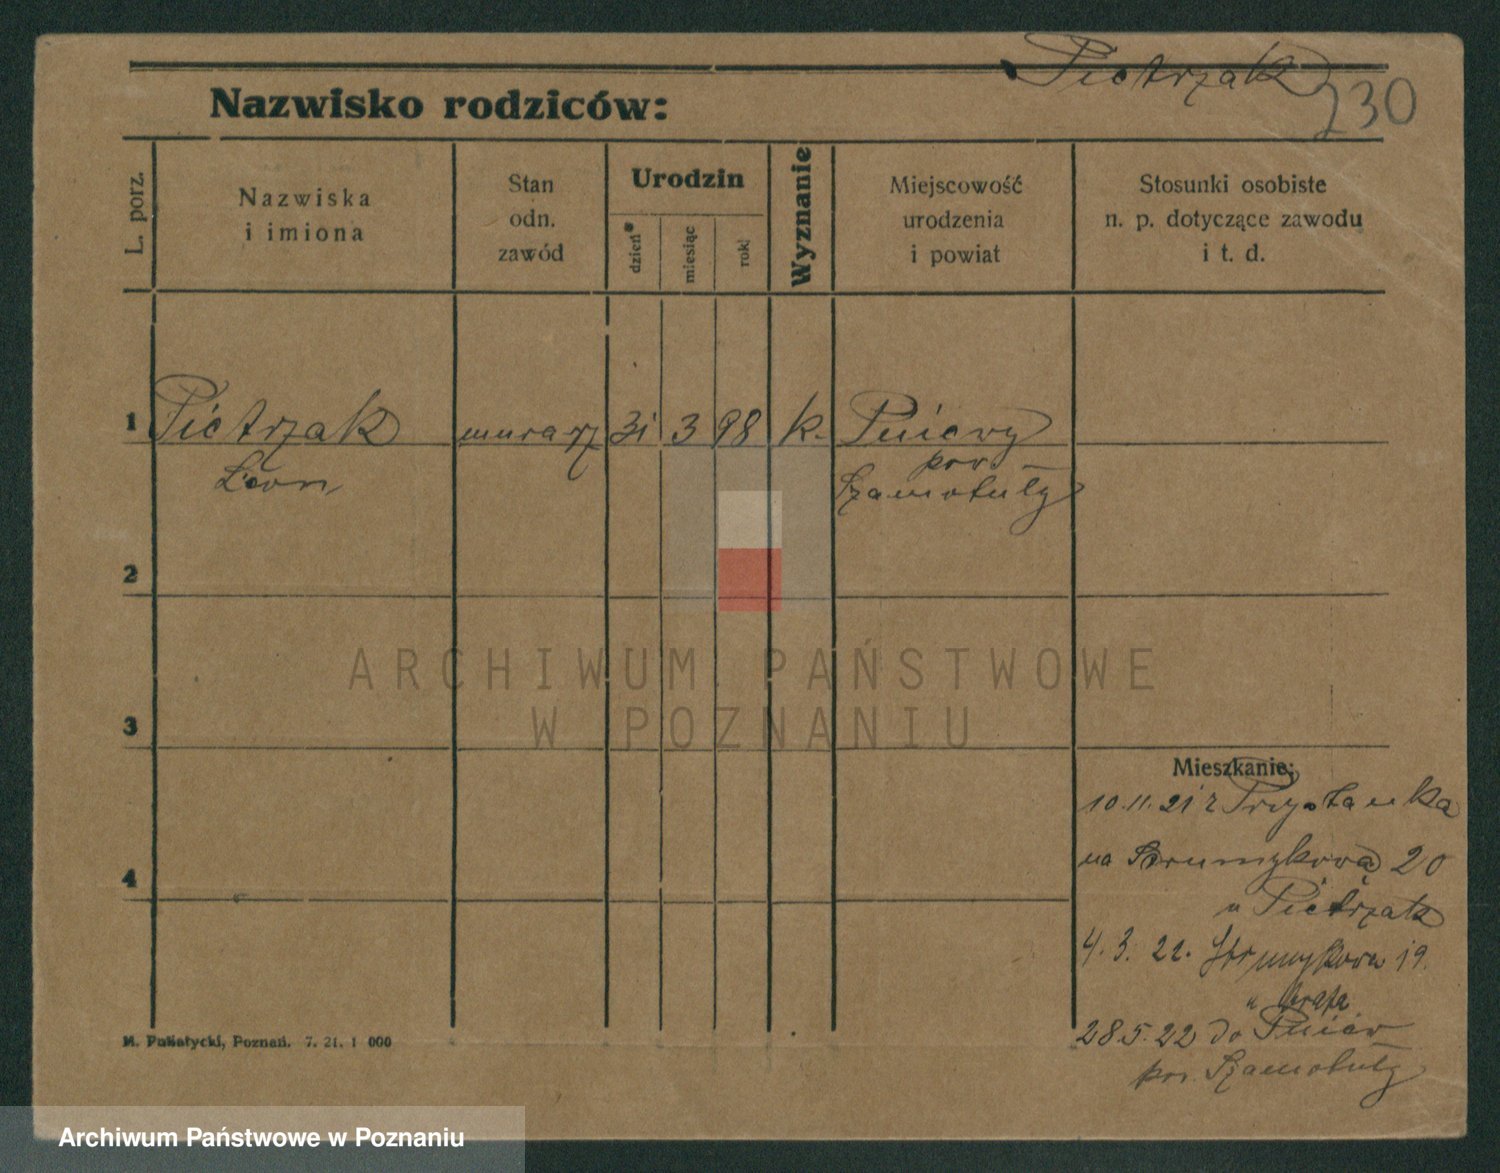 Pietrzak
230
Nazwisko rodziców:
L. porz.
Nazwiska
i imiona
Stan
odn.
zawód
Urodzin
dzień
miesiąc
rok
Wyznanie
Miejscowość
urodzenia
i powiat
Stosunki osobiste
n. p. dotyczące zawodu
i t. d.
1 Pietrzak murarz 31 3 98 k. Pniewy
Leon pow. Szamotuły
2
3
4
ARCHIWUM PAŃSTWOWE
W POZNANIU
Mieszkanie:
10.11.21 z Przystanka
na Strumykowa 20
u Pietrzak
4. 3. 22. Strumykowa 19.
u brata
28.5.22 do Pniew
pow. Szamotuły
M. Putiatycki, Poznań. 7. 21. 1 000
Archiwum Państwowe w Poznaniu